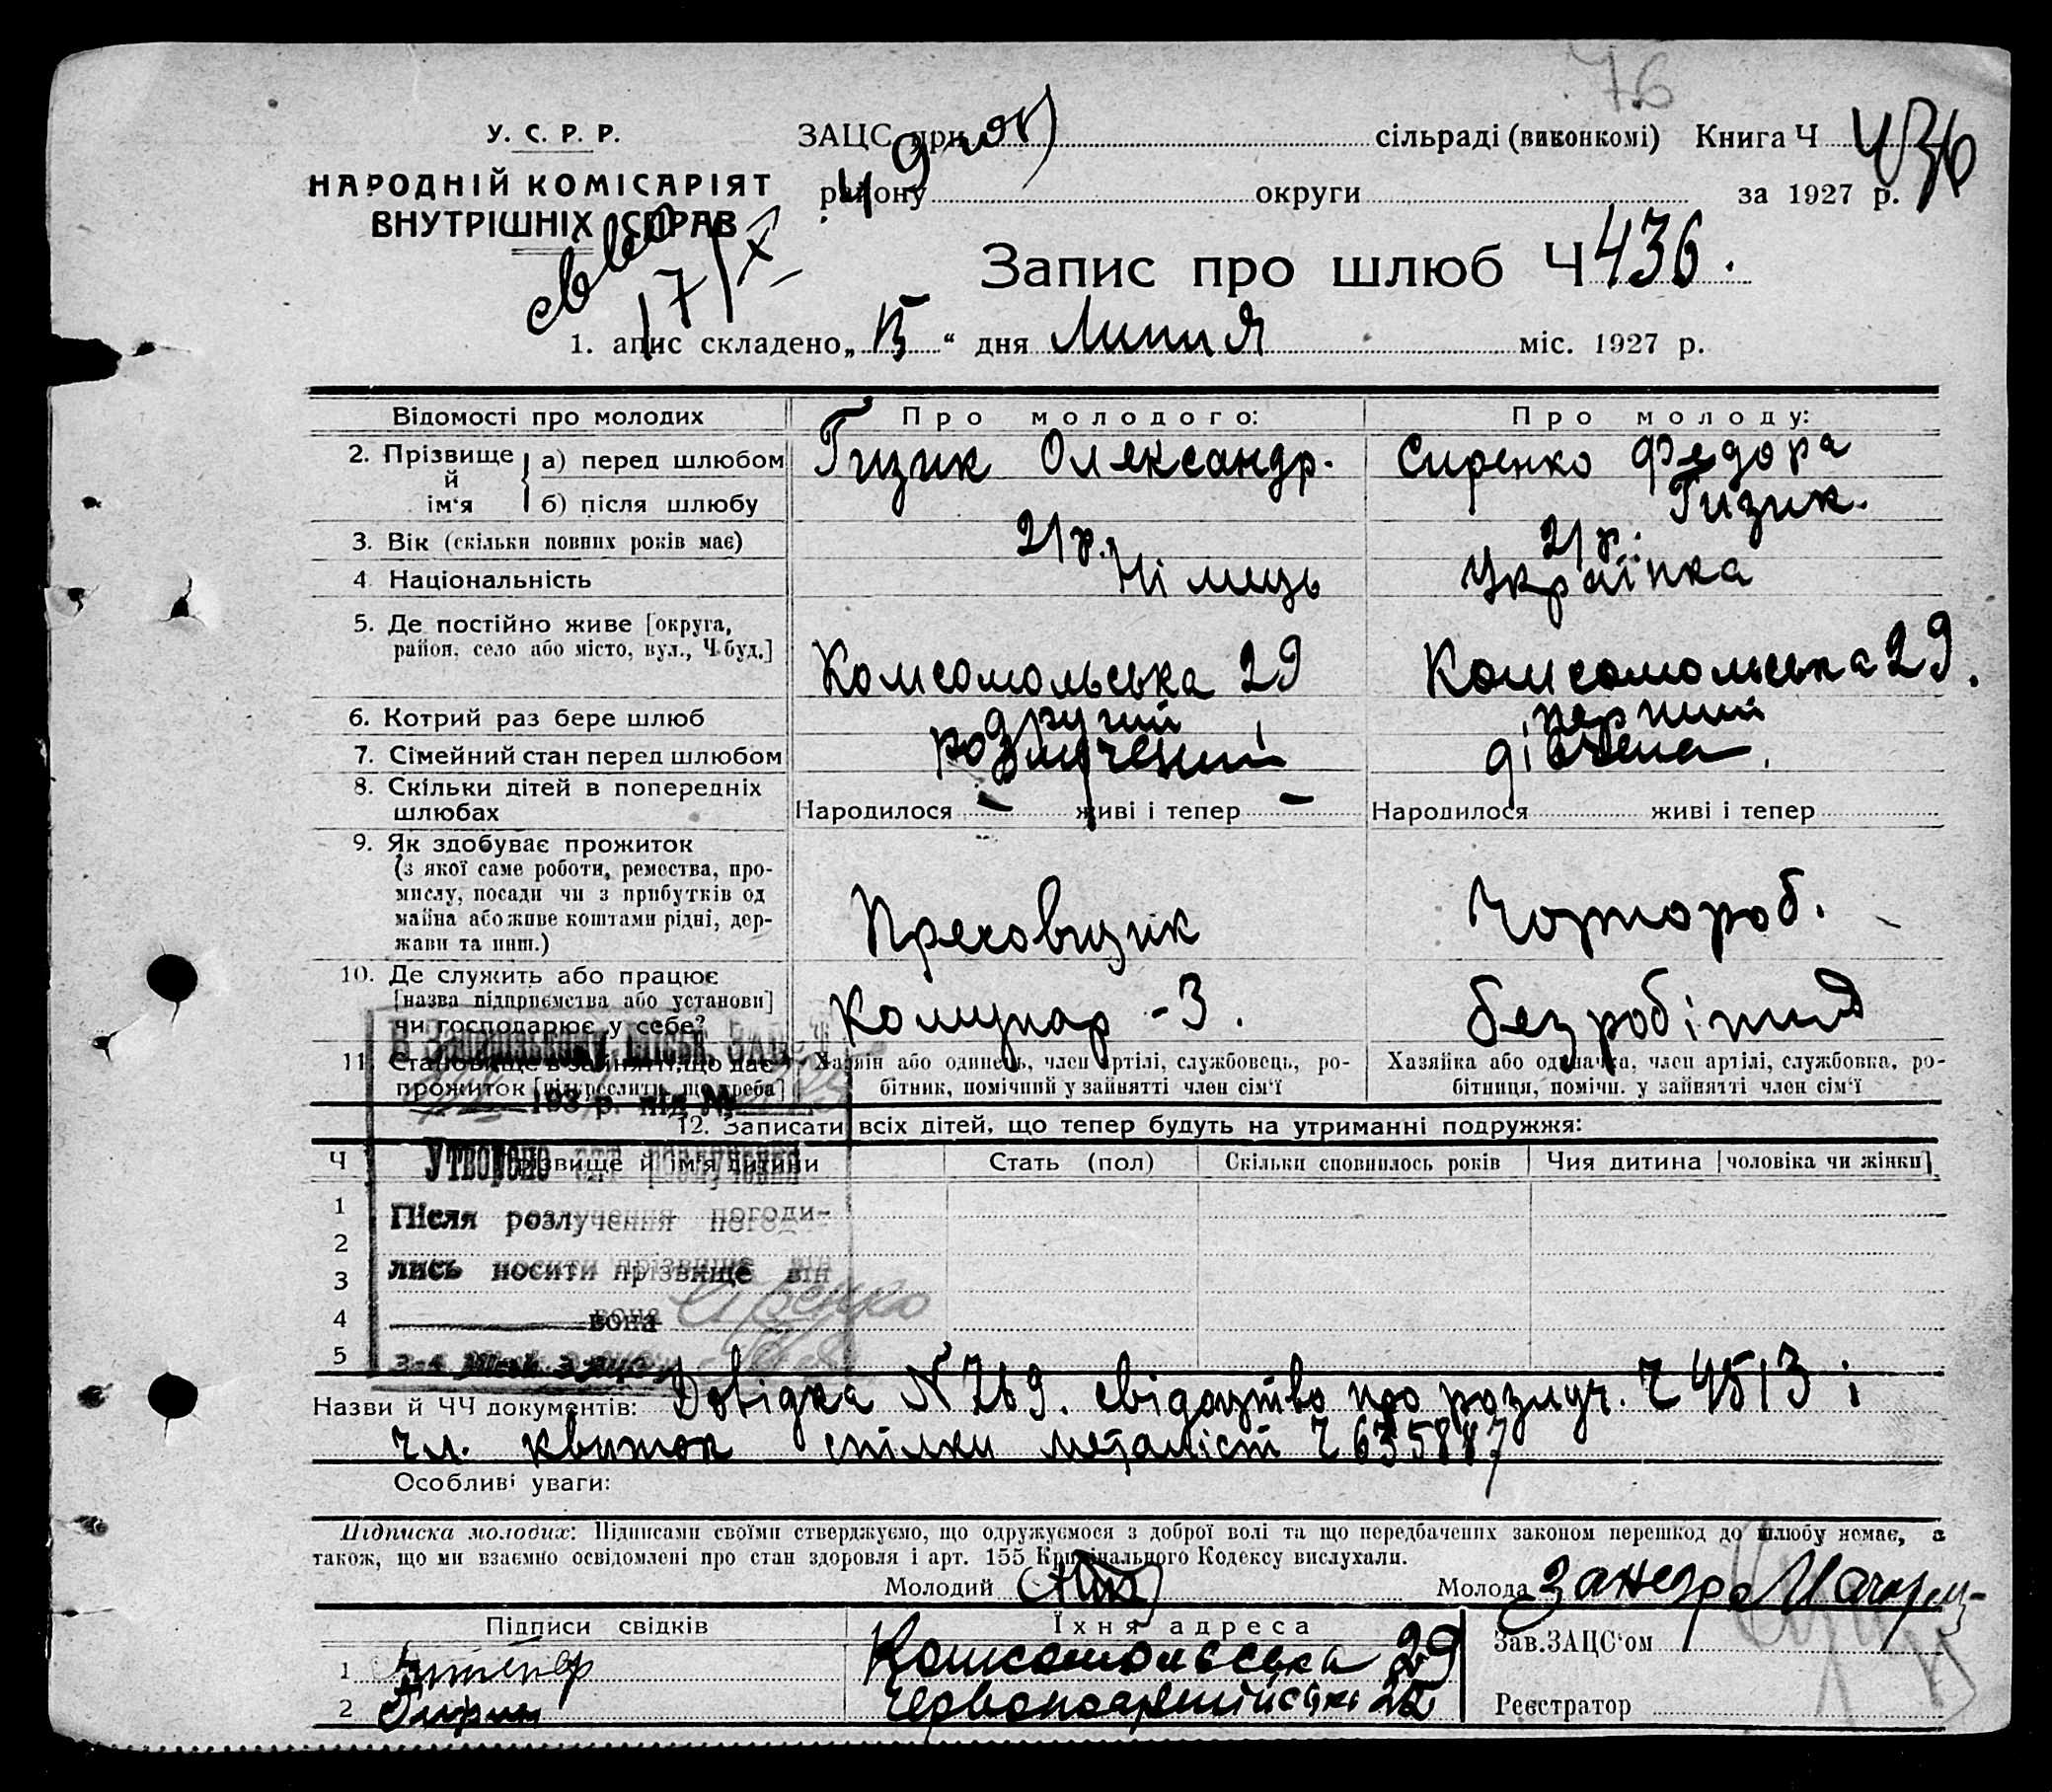 76
У. С. Р. Р.
НАРОДНІЙ КОМІСАРІЯТ
ВНУТРІШНІХ СПРАВ
ЗАЦС при сільраді (виконкомі) Книга Ч 436
району округи за 1927 р.
17/X
Запис про шлюб Ч 436.
1. апис складено „15“ дня Липня міс. 1927 р.
Відомості про молодих Про молодого: Про молоду:
2. Прізвище й ім'я а) перед шлюбом Гизик Олександр. Сиренко Федора
б) після шлюбу Гизик.
3. Вік (скільки повних років має) 21 р. 21 р.
4 Національність Німець Українка
5. Де постійно живе [округа,
район, село або місто, вул., Ч. буд.] Комсомольська 29 Комсомольська 29.
6. Котрий раз бере шлюб другий перший
7. Сімейний стан перед шлюбом розлучений дівчена.
8. Скільки дітей в попередніх
шлюбах Народилося – живі і тепер – Народилося живі і тепер
9. Як здобуває прожиток
(з якої саме роботи, ремества, про-
мислу, посади чи з прибутків од
майна або живе коштами рідні, дер-
жави та инш.) Чорнороб.
10. Де служить або працює
[назва підприємства або установи]
чи господарює у себе? Комунар - 3. безробітня
11 Становище в занятті, що дає
прожиток [підкреслити, що треба]
Хазяїн або одинець, член артілі, службовець, ро-
бітник, помічний у занятті член сім'ї
Хазяйка або одиначка, член артілі, службовка, ро-
бітниця, помічн. у занятті член сім'ї
193 р. під №
12. Записати всіх дітей, що тепер будуть на утриманні подружжя:
Ч Прізвище й ім'я дитини Стать (пол) Скільки сповнилось років Чия дитина [чоловіка чи жінки]
1
2
3
4
5
Утворено акт розлучення
Після розлучення погоди-
лись носити прізвище він
вона Сіренко
Назви й ЧЧ документів: Довідка N 769. свідоцтво про розлуч. Ч 4513 і
чл. квиток спілки металіст Ч 635887
Особливі уваги:
Підписка молодих: Підписами своїми стверджуємо, що одружуємося з доброї волі та що передбачених законом перешкод до шлюбу немає, а
також, що ми взаємно освідомлені про стан здоровля і арт. 155 Кримінального Кодексу вислухали.
Молодий Молода
Підписи свідків Їхня адреса
1 Комсомольська 29
2 Червоноармійська 25
Зав. ЗАЦС'ом
Реєстратор